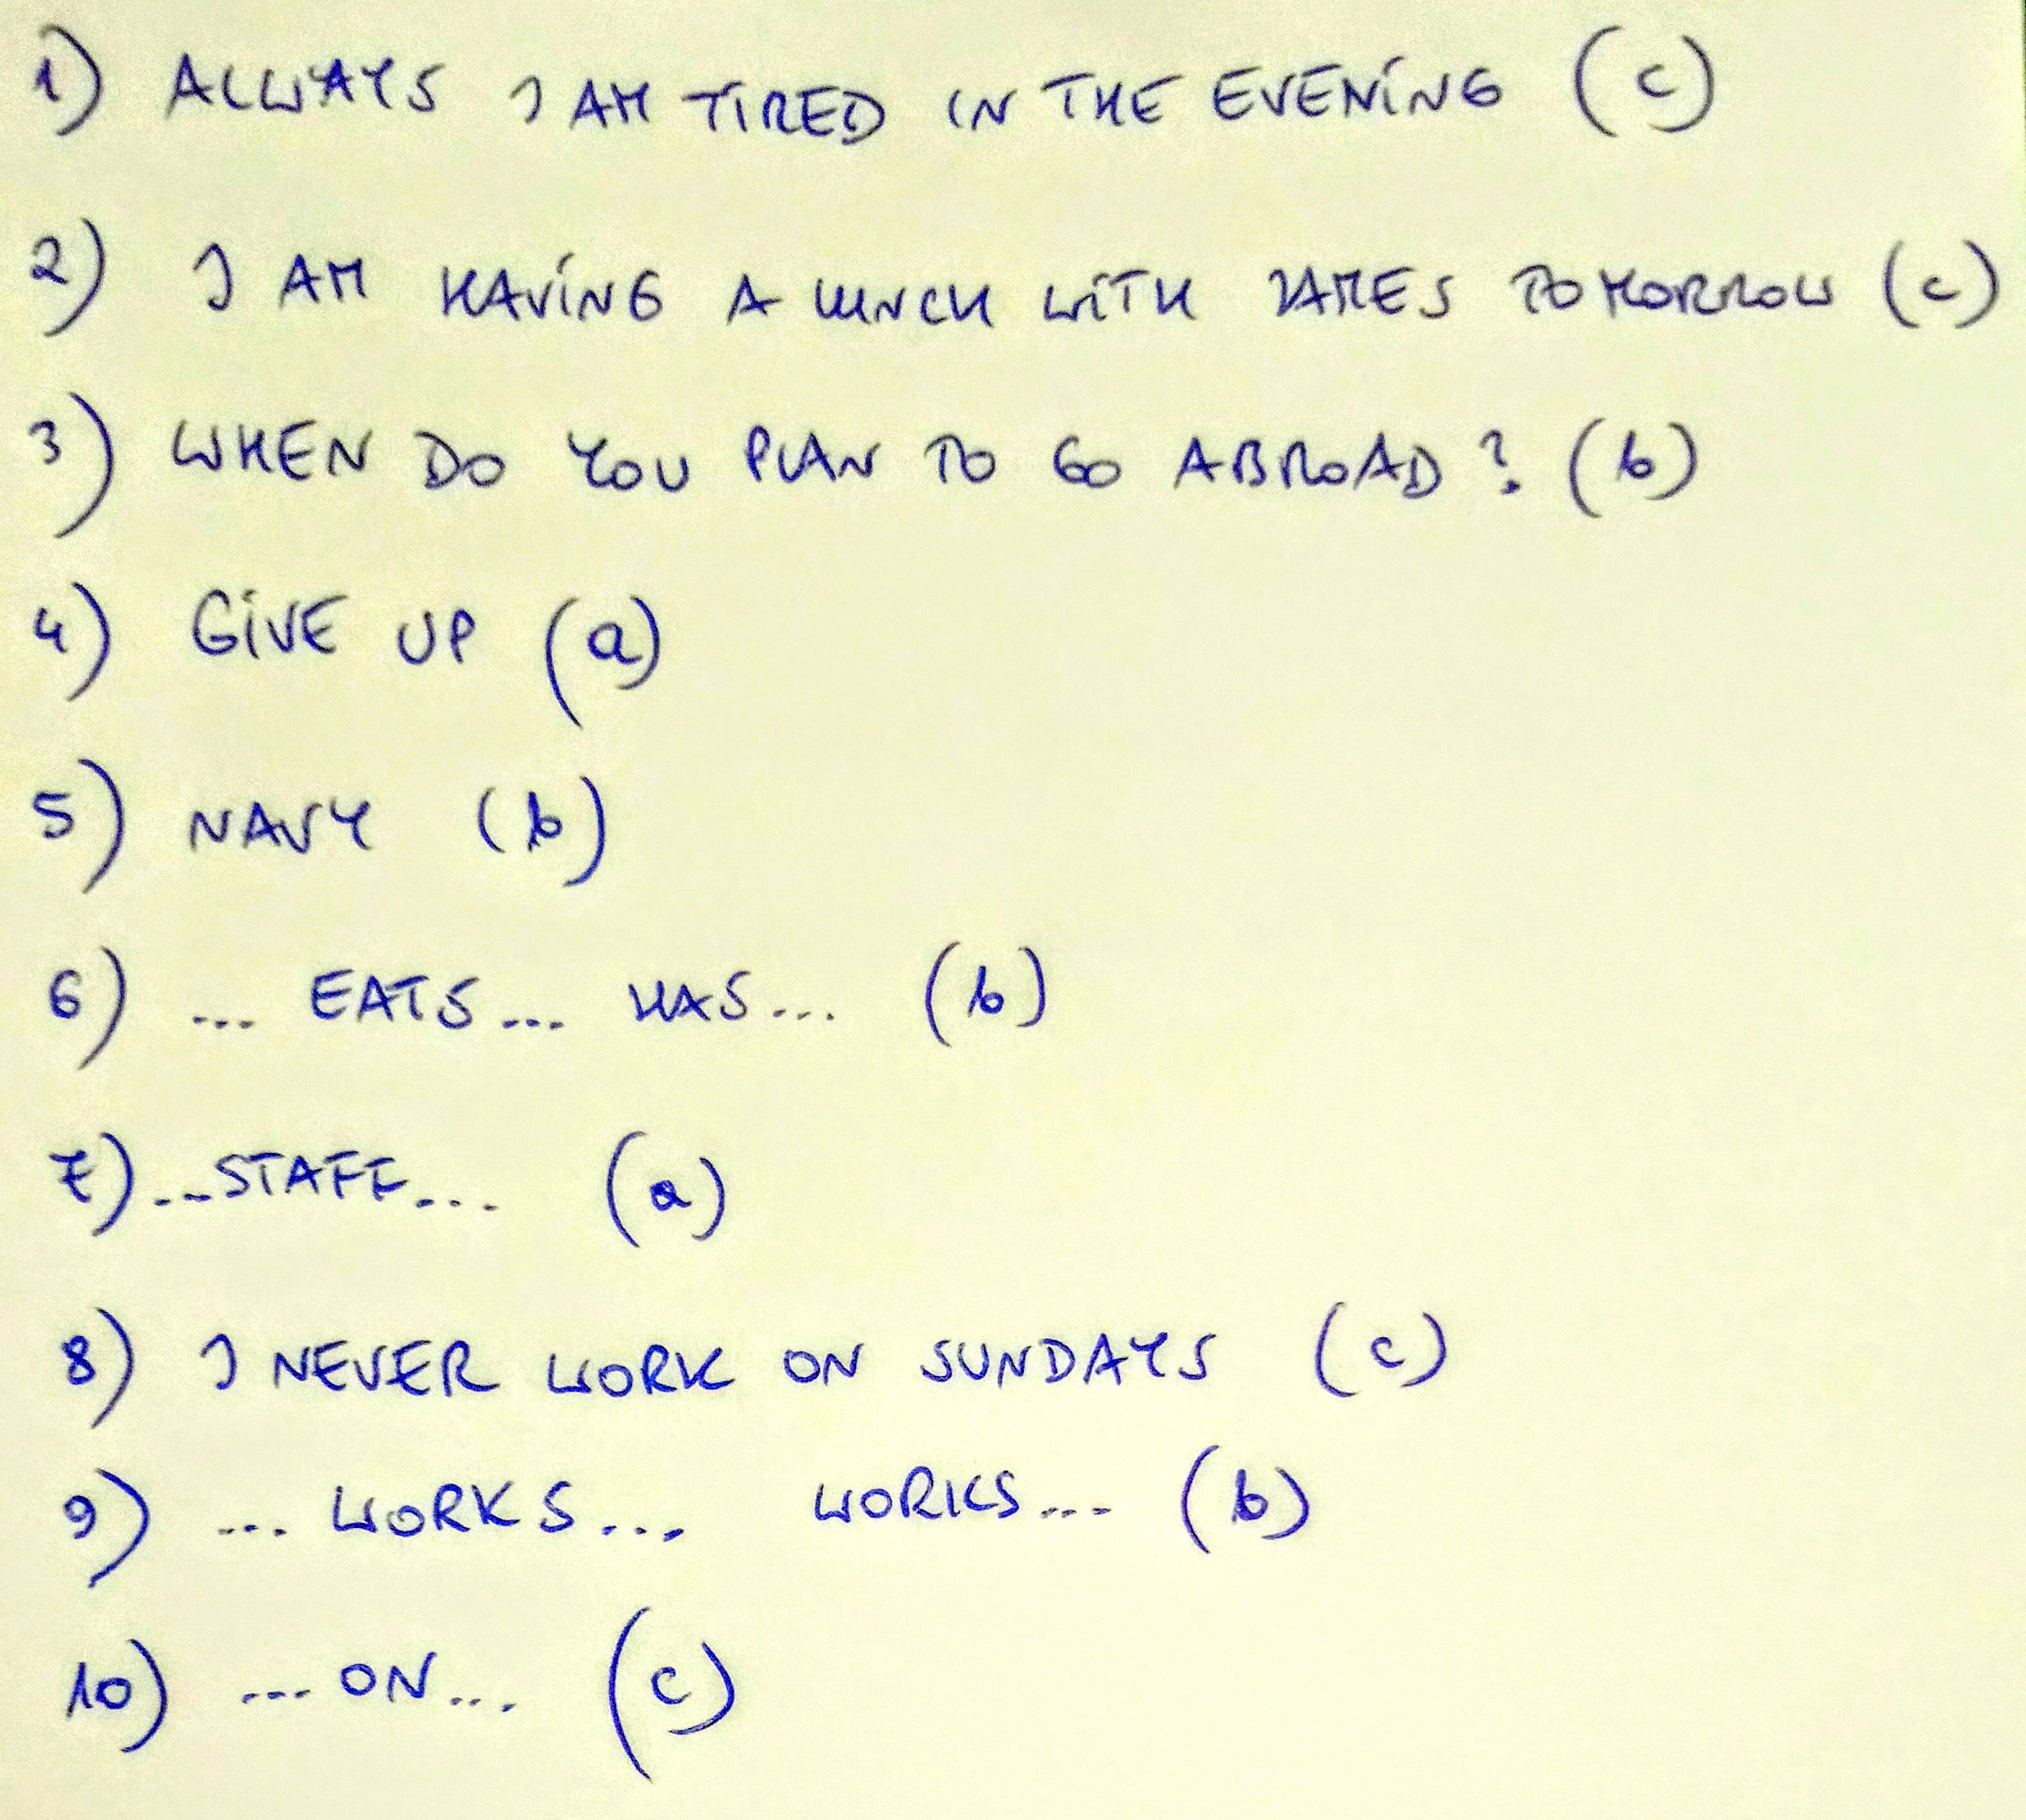 1) ALWAYS I AM TIRED IN THE EVENING (c)
2) I AM HAVING A LUNCH WITH JAMES TOMORROW (c)
3) WHEN DO YOU PLAN TO GO ABROAD? (b)
4) GIVE UP (a)
5) NAVY (b)
6) ... EATS ... HAS... (b)
7) ...STAFF... (a)
8) I NEVER WORK ON SUNDAYS (c)
9) ... WORKS... WORKS... (b)
10) ... ON... (c)